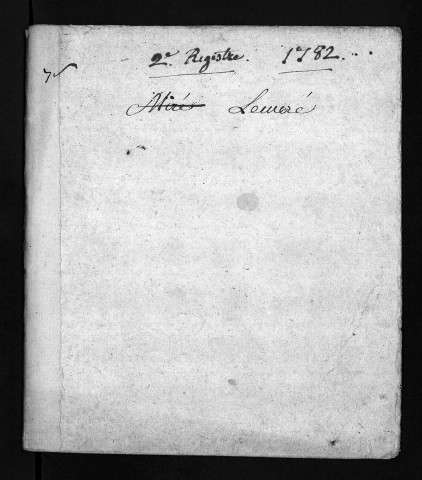 2e Registre. 1782...
Lemeré